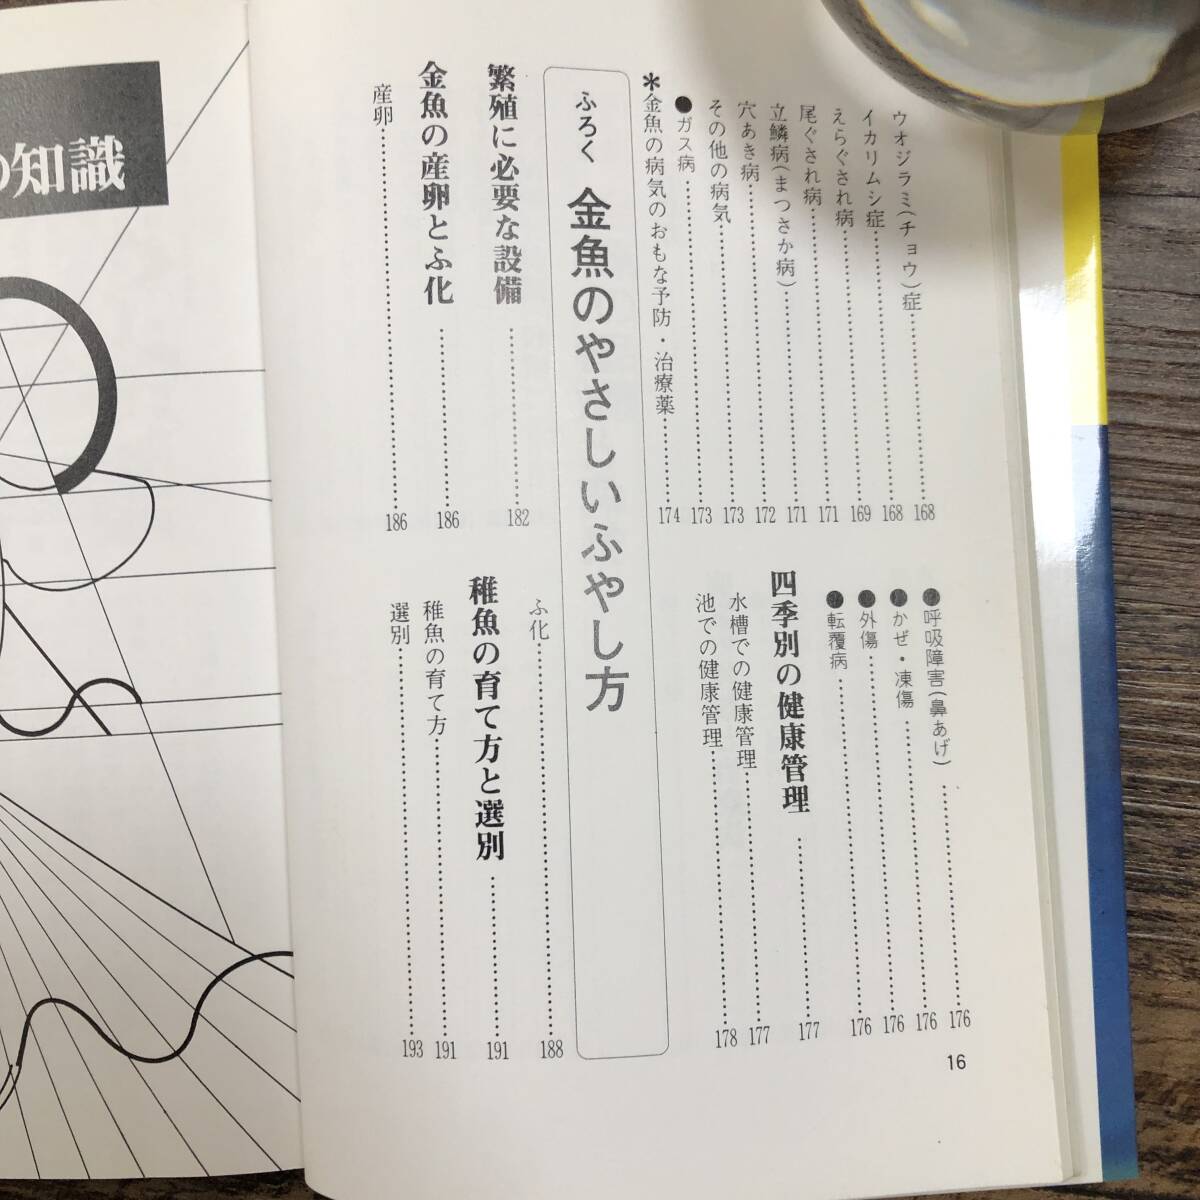 の知識
ウオジラミ(チョウ)症……168
イカリムシ症……168
えらぐされ病……169
尾ぐされ病……171
立鱗病(まつさか病)……171
穴あき病……172
その他の病気……173
●ガス病……173
*金魚の病気のおもな予防・治療薬……174
●呼吸障害(鼻あげ)……176
●かぜ・凍傷……176
●外傷……176
●転覆病……176
四季別の健康管理……177
水槽での健康管理……177
池での健康管理……178
ふろく 金魚のやさしいふやし方
繁殖に必要な設備……182
金魚の産卵とふ化……186
産卵……186
ふ化……188
稚魚の育て方と選別……191
稚魚の育て方……191
選別……193
16